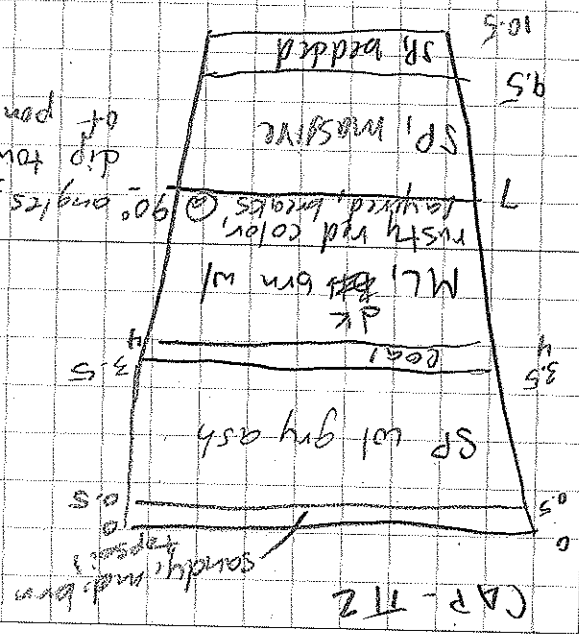 CAP-TP2
sandy, md. brn
topsoil
0 0
0.5 0.5
SP w/ gry ash
3.5 3.5
coal
4 4
dk
ML, brn w/
rusty red color,
layered, breaks @ 90° angles,
7
dip tow
SP, massive
of pon
9.5
SP, bedded
10.5